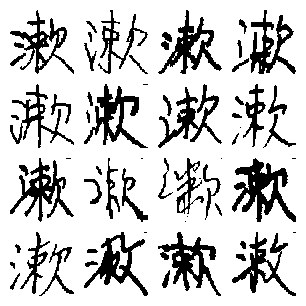 漱漱漱漱
漱漱漱漱
漱漱漱漱
漱漱漱漱